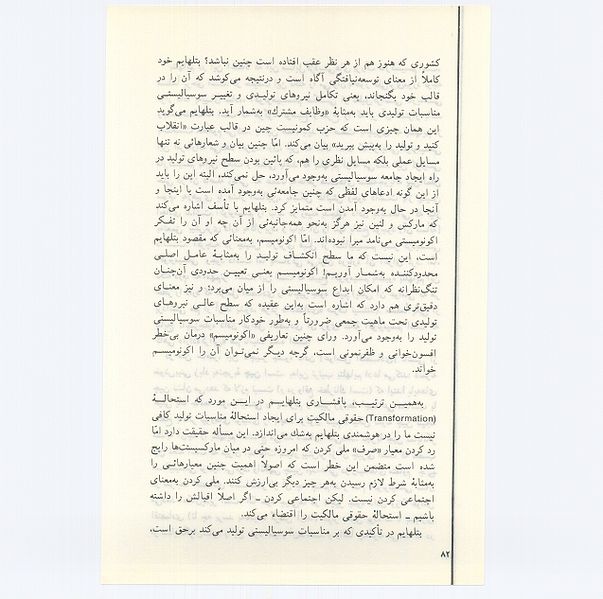 کشوری که هنوز هم از هر نظر عقب افتاده است چنین نباشد؟ بتلهایم خود
کاملاً از معنای توسعه‌نیافتگی آگاه است و درنتیجه می‌کوشد که آن را در
قالب خود بگنجاند، یعنی تکامل نیروهای تولیدی و تغییر سوسیالیستی
مناسبات تولیدی باید به‌مثابهٔ «وظایف مشترك» به‌شمار آید. بتلهایم می‌گوید
این همان چیزی است که حزب کمونیست چین در قالب عبارت «انقلاب
کنید و تولید را به‌پیش ببرید» بیان می‌کند. امّا چنین بیان و شعارهائی نه تنها
مسایل عملی بلکه مسایل نظری را هم، که پائین بودن سطح نیروهای تولید در
راه ایجاد جامعه سوسیالیستی به‌وجود می‌آورد، حل نمی‌کند. البته این را باید
از این گونه ادعاهای لفظی که چنین جامعه‌ئی به‌وجود آمده است یا اینجا و
آنجا در حال به‌وجود آمدن است متمایز کرد. بتلهایم با تأسف اشاره می‌کند
که مارکس و لنین نیز هرگز به‌نحو همه‌جانبه‌ئی از آن چه او آن را تفکر
اکونومیستی می‌نامد مبرا نبوده‌اند. امّا اکونومیسم، به‌معنائی که مقصود بتلهایم
است، این نیست که ما سطح انکشاف تولید را به‌مثابهٔ عامل اصلی
محدودکننده به‌شمار آوریم! اکونومیسم یعنی تعیین حدودی آن‌چنان
تنگ‌نظرانه که امکان ابداع سوسیالیستی را از میان می‌برد؛ و نیز معنای
دقیق‌تری هم دارد که اشاره است به‌این عقیده که سطح عالی نیروهای
تولیدی تحت ماهیت جمعی ضرورتاً و به‌طور خودکار مناسبات سوسیالیستی
تولید را به‌وجود می‌آورد. ورای چنین تعاریفی «اکونومیسم» درمان بی‌خطر
افسون‌خوانی و ظفرنمونی است، گرچه دیگر نمی‌توان آن را اکونومیسم
خواند.
به‌همین ترتیب، پافشاری بتلهایم در این مورد که استحالهٔ
(Transformation) حقوقی مالکیت برای ایجاد استحالهٔ مناسبات تولید کافی
نیست ما را در هوشمندی بتلهایم به‌شك می‌اندازد. این مسأله حقیقت دارد امّا
رد کردن معیار «صرف» ملی کردن که امروزه حتی در میان مارکسیست‌ها رایج
شده است متضمن این خطر است که اصولاً اهمیت چنین معیارهائی را
به‌مثابهٔ شرط لازم رسیدن به‌هر چیز دیگر بی‌ارزش کنند. ملی کردن به‌معنای
اجتماعی کردن نیست. لیکن اجتماعی کردن ــ اگر اصلاً اقبالش را داشته
باشیم ــ استحالهٔ حقوقی مالکیت را اقتضاء می‌کند.
بتلهایم در تأکیدی که بر مناسبات سوسیالیستی تولید می‌کند برحق است،
۸۲